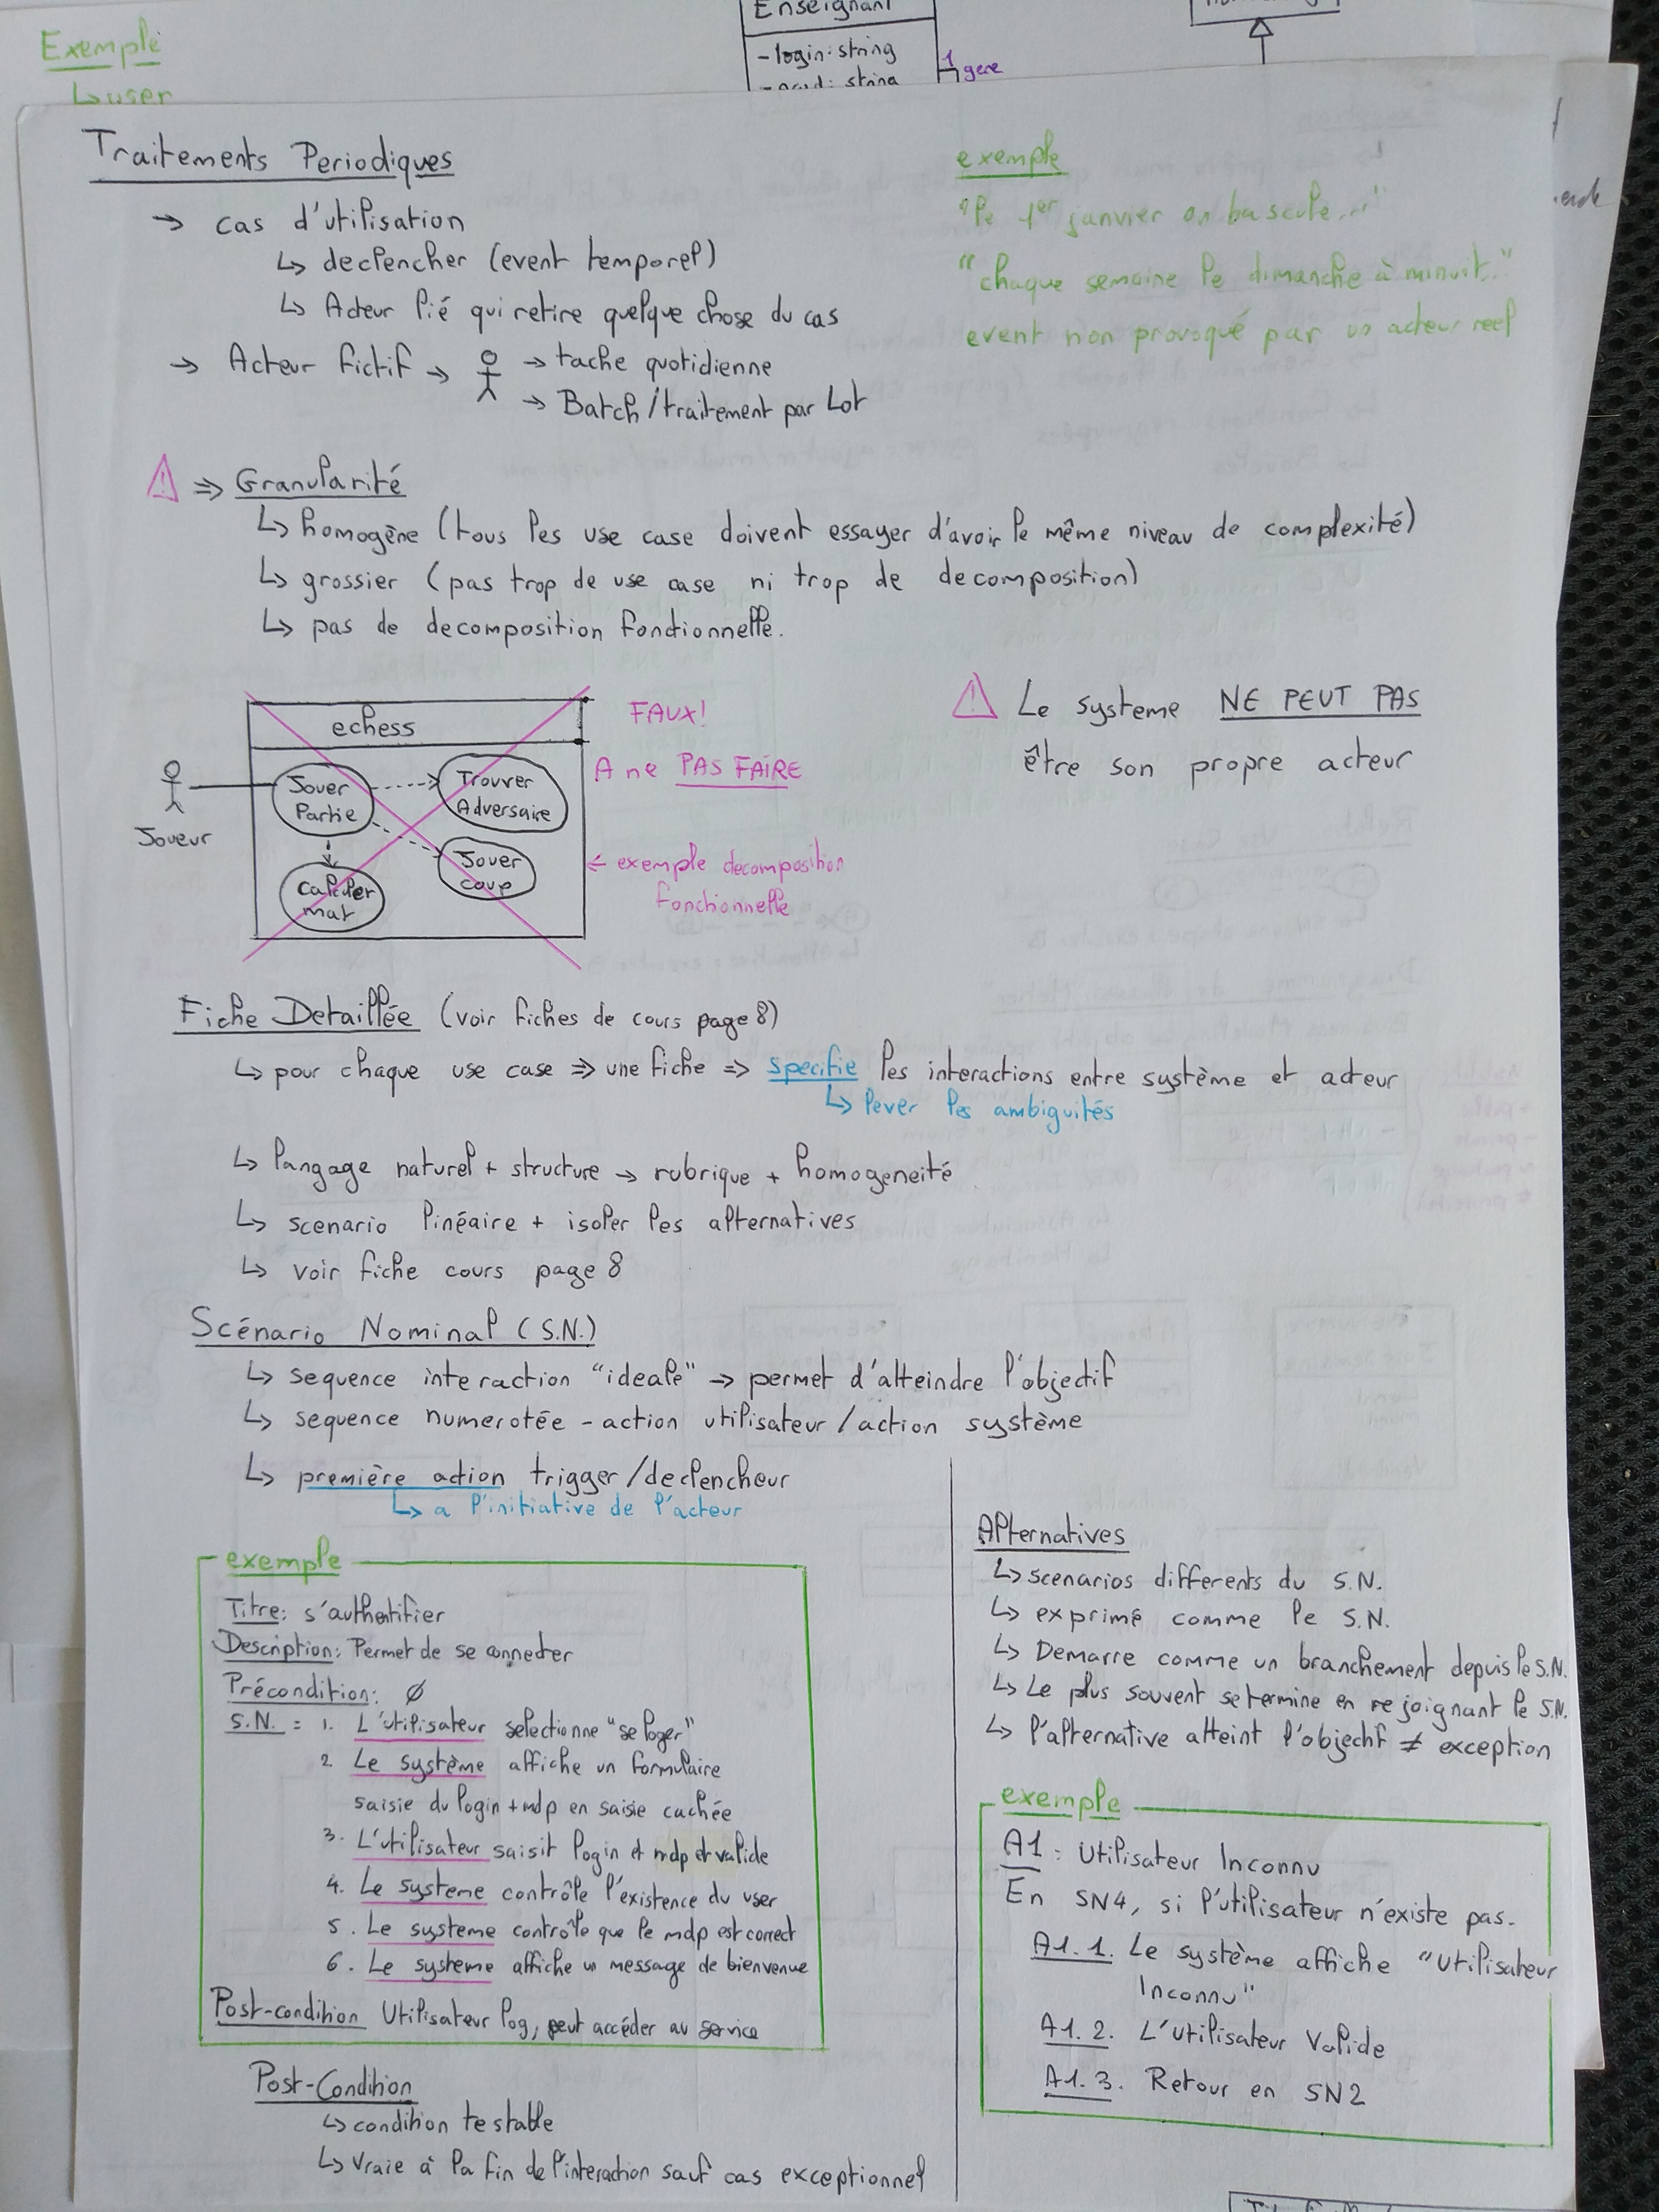 Exemple
↳ user
Enseignant
- login: string
1
gere
Traitements Periodiques
→ cas d'utilisation
↳ declencher (event temporel)
↳ Acteur lié qui retire quelque chose du cas
→ Acteur fictif → → tache quotidienne
→ Batch / traitement par Lot
exemple
"le 1er janvier on bascule..."
"chaque semaine le dimanche à minuit.."
event non provoqué par un acteur reel
⚠ => Granularité
↳ homogène (tous les use case doivent essayer d'avoir le même niveau de complexité)
↳ grossier (pas trop de use case ni trop de decomposition)
↳ pas de decomposition fonctionnelle.
echess
Joueur
Jouer
Partie
Trouver
Adversaire
Jouer
coup
Calculer
mat
FAUX!
A ne PAS FAIRE
← exemple decomposition
fonctionnelle
⚠ Le systeme NE PEUT PAS
être son propre acteur
Fiche Detaillée (voir fiches de cours page 8)
↳ pour chaque use case => une fiche => specifie les interactions entre système et acteur
↳ lever les ambiguités
↳ langage naturel + structure → rubrique + homogeneité
↳ scenario linéaire + isoler les alternatives
↳ voir fiche cours page 8
Scénario Nominal (S.N.)
↳ sequence interaction "ideale" → permet d'atteindre l'objectif
↳ sequence numerotée - action utilisateur / action système
↳ première action trigger / declencheur
↳ a l'initiative de l'acteur
exemple
Titre: s'authentifier
Description: Permet de se connecter
Précondition: ∅
S.N. = 1. L'utilisateur selectionne "se loger"
2. Le système affiche un formulaire
saisie du login + mdp en saisie cachée
3. L'utilisateur saisit login et mdp et valide
4. Le systeme contrôle l'existence du user
5. Le systeme contrôle que le mdp est correct
6. Le systeme affiche un message de bienvenue
Post-condition Utilisateur log, peut accéder au service
Post-Condition
↳ condition testable
↳ vraie à la fin de l'interaction sauf cas exceptionnel
Alternatives
↳ scenarios differents du S.N.
↳ exprimé comme le S.N.
↳ Demarre comme un branchement depuis le S.N.
↳ Le plus souvent se termine en rejoignant le S.N.
↳ l'alternative atteint l'objectif ≠ exception
exemple
A1: Utilisateur Inconnu
En SN4, si l'utilisateur n'existe pas.
A1.1. Le système affiche "Utilisateur
Inconnu"
A1.2. L'utilisateur Valide
A1.3. Retour en SN2